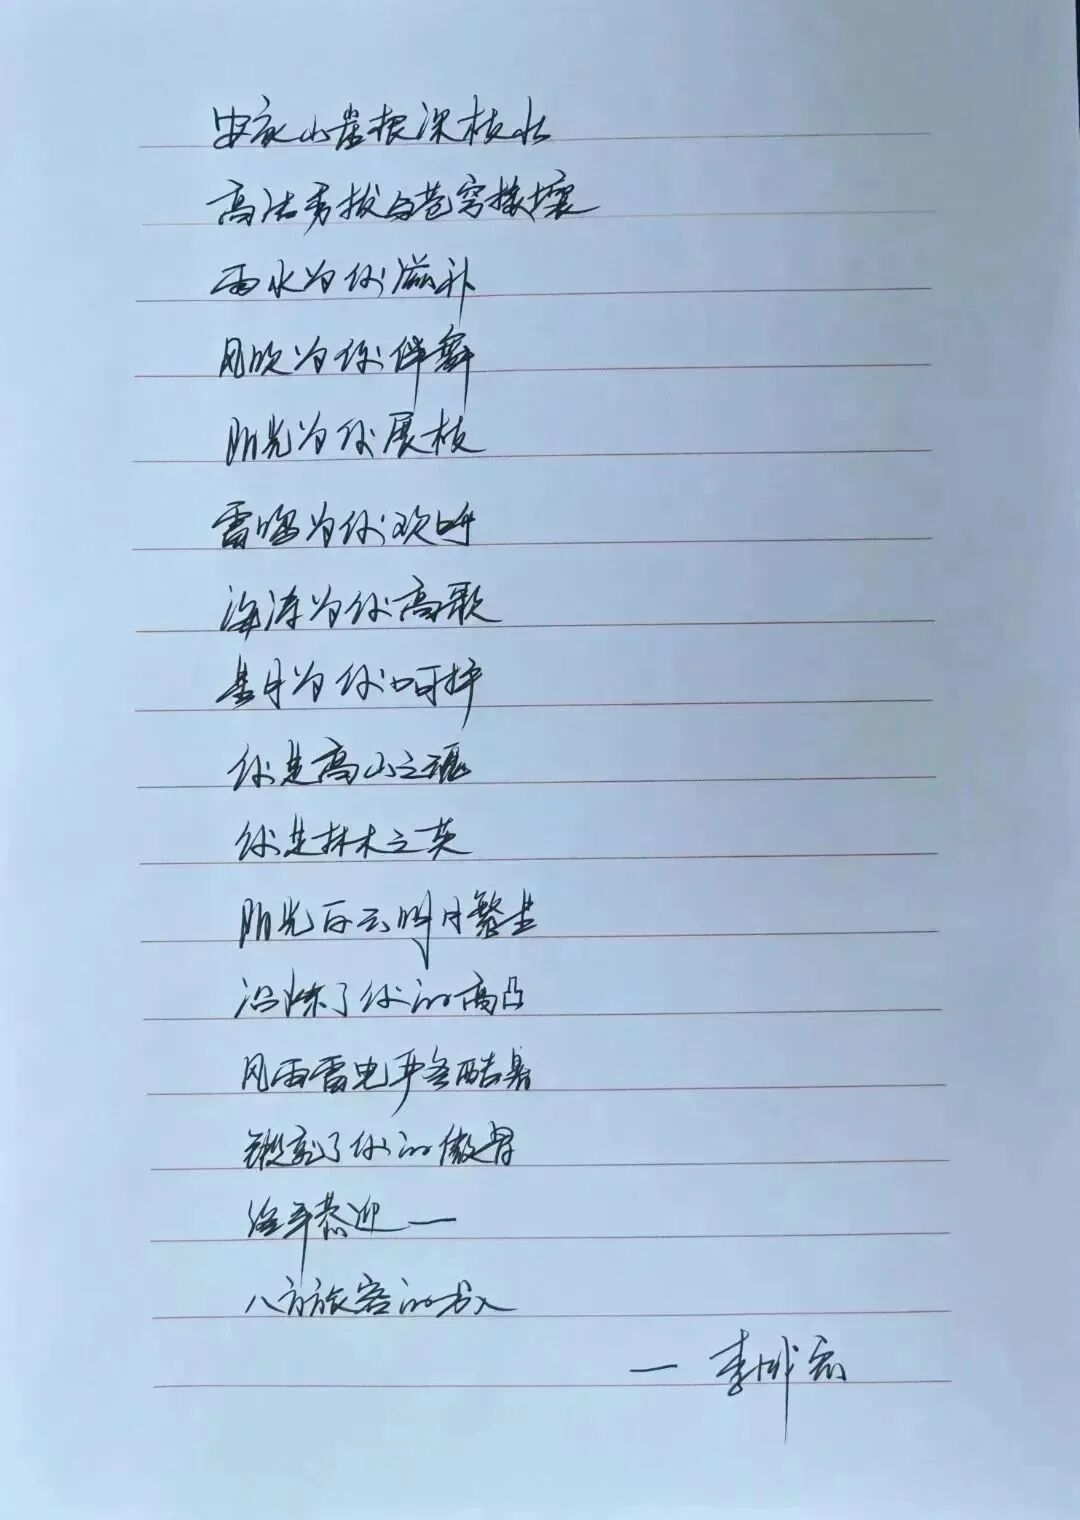 安家山崖根深枝壮
高洁秀拔与苍穹接壤
雨水为你滋补
风吹为你伴舞
阳光为你展枝
雷鸣为你欢呼
海涛为你高歌
星月为你呵护
你是高山之魂
你是林木之英
阳光白云明月繁星
沿炼了你的高凸
风雨雷电严冬酷暑
锻就了你的傲骨
终年恭迎——
八方旅客的
— 李成